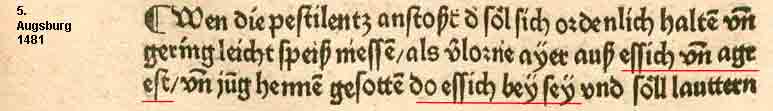 5.
Augsburg
1481
¶ Wen die pestilentz anstoßt d̄ sol sich ordenlich haltē vn̄
gering leicht speiß niessen/als v̄lorne ayer auß essich vn̄ agr
est/vn̄ jūg hennen gesottē do essich bey sey vnd soll lauttern